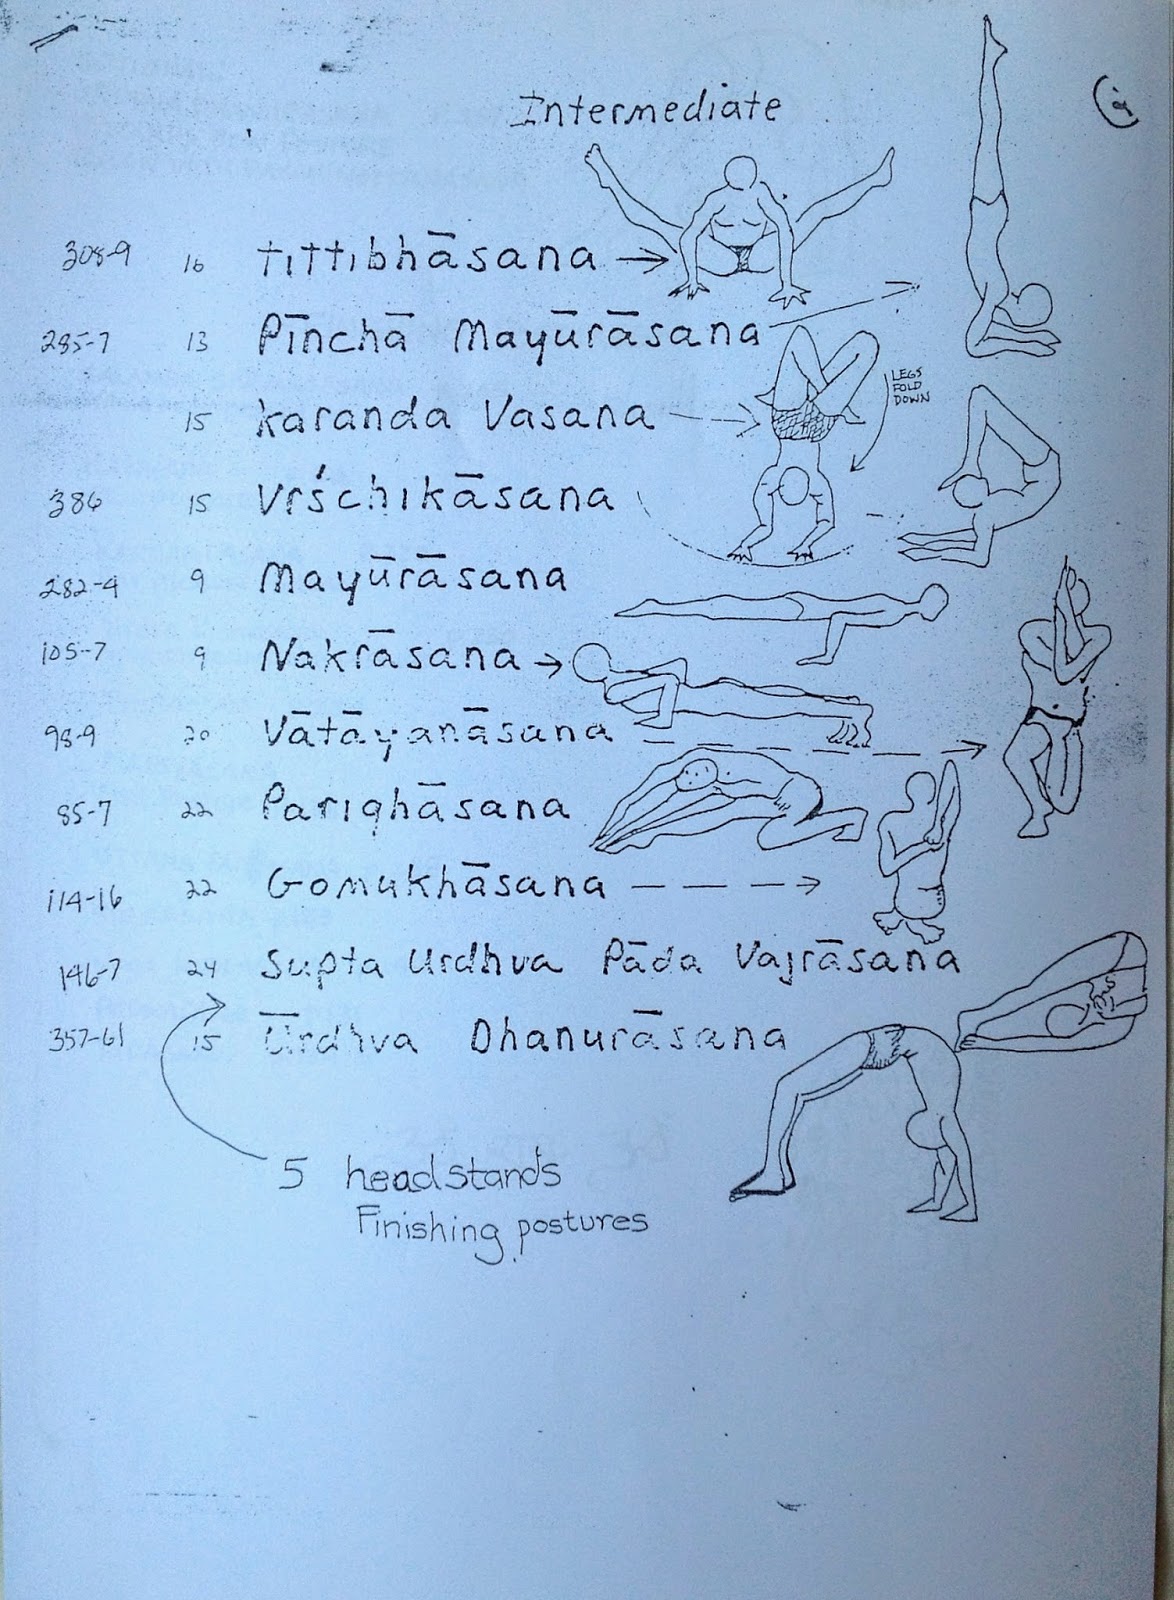 Intermediate
308-9 16 tittibhāsana
285-7 13 Pīnchā Mayūrāsana
LEGS
FOLD
DOWN
15 karanda Vasana
386 15 Vrśchikāsana
282-4 9 Mayūrāsana
105-7 9 Nakrāsana
98-9 20 Vātāyanāsana
85-7 22 Parighāsana
114-16 22 Gomukhāsana
146-7 24 Supta Urdhva Pāda Vajrāsana
357-61 15 Ūrdhva Dhanurāsana
5 headstands
Finishing postures